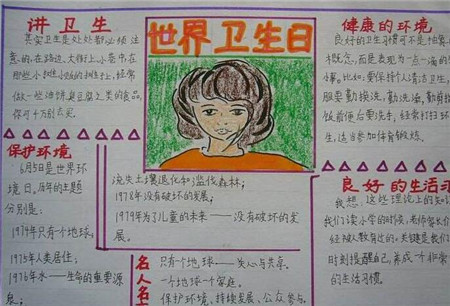 讲卫生
其实卫生是处处都必须注
意的,在路边、大街上,小巷中在
那些小摊小贩的摊位上,经常
做一些油饼、臭豆腐之类的食品,
你可千万别去买。
保护环境
6月5日是世界环
境日,历年的主题
分别是:
1974年只有个地球;
1975年人类居住;
1976年水——生命的重要源
泉;
世界卫生日
流失土壤退化和滥伐森林;
1978年没有破坏的发展;
1979年为了儿童的未来——没有破坏的发
展。
名人名
只有个地球——关心与共享。
一个地球一个家庭。
保护环境、持续发展、公众参与。
健康的环境
良好的卫生习惯可不是抽象
大概念,而是表现为一点一滴的
事。比如:要保持个人清洁卫生,
服要勤换洗、勤洗澡、勤剪指
饭前便后要洗手,经常打扫环
生,适当参加体育锻炼。
良好的生活习
我想,这些理论上的知识
我们读小学的时候,老师家长们
经教育过的,关键是我们
时刻提醒自己,养成一个非常
的生活习惯。